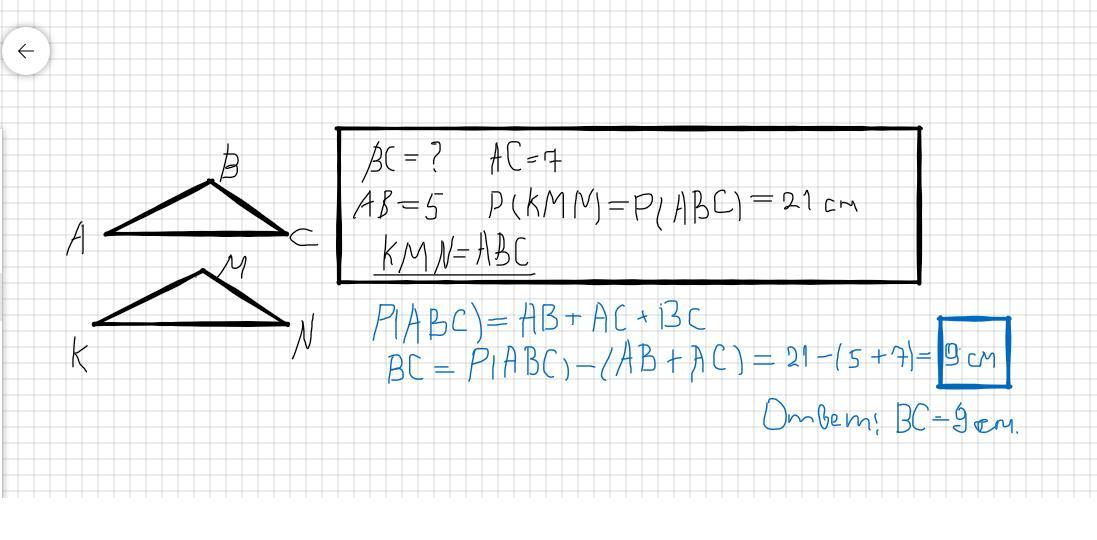 B
A
C
M
K
N
BC = ? AC = 7
AB = 5 P(KMN) = P(ABC) = 21 см
KMN = ABC
P(ABC) = AB + AC + BC
BC = P(ABC) - (AB + AC) = 21 - (5 + 7) = 9 см
Ответ: BC - 9 см.